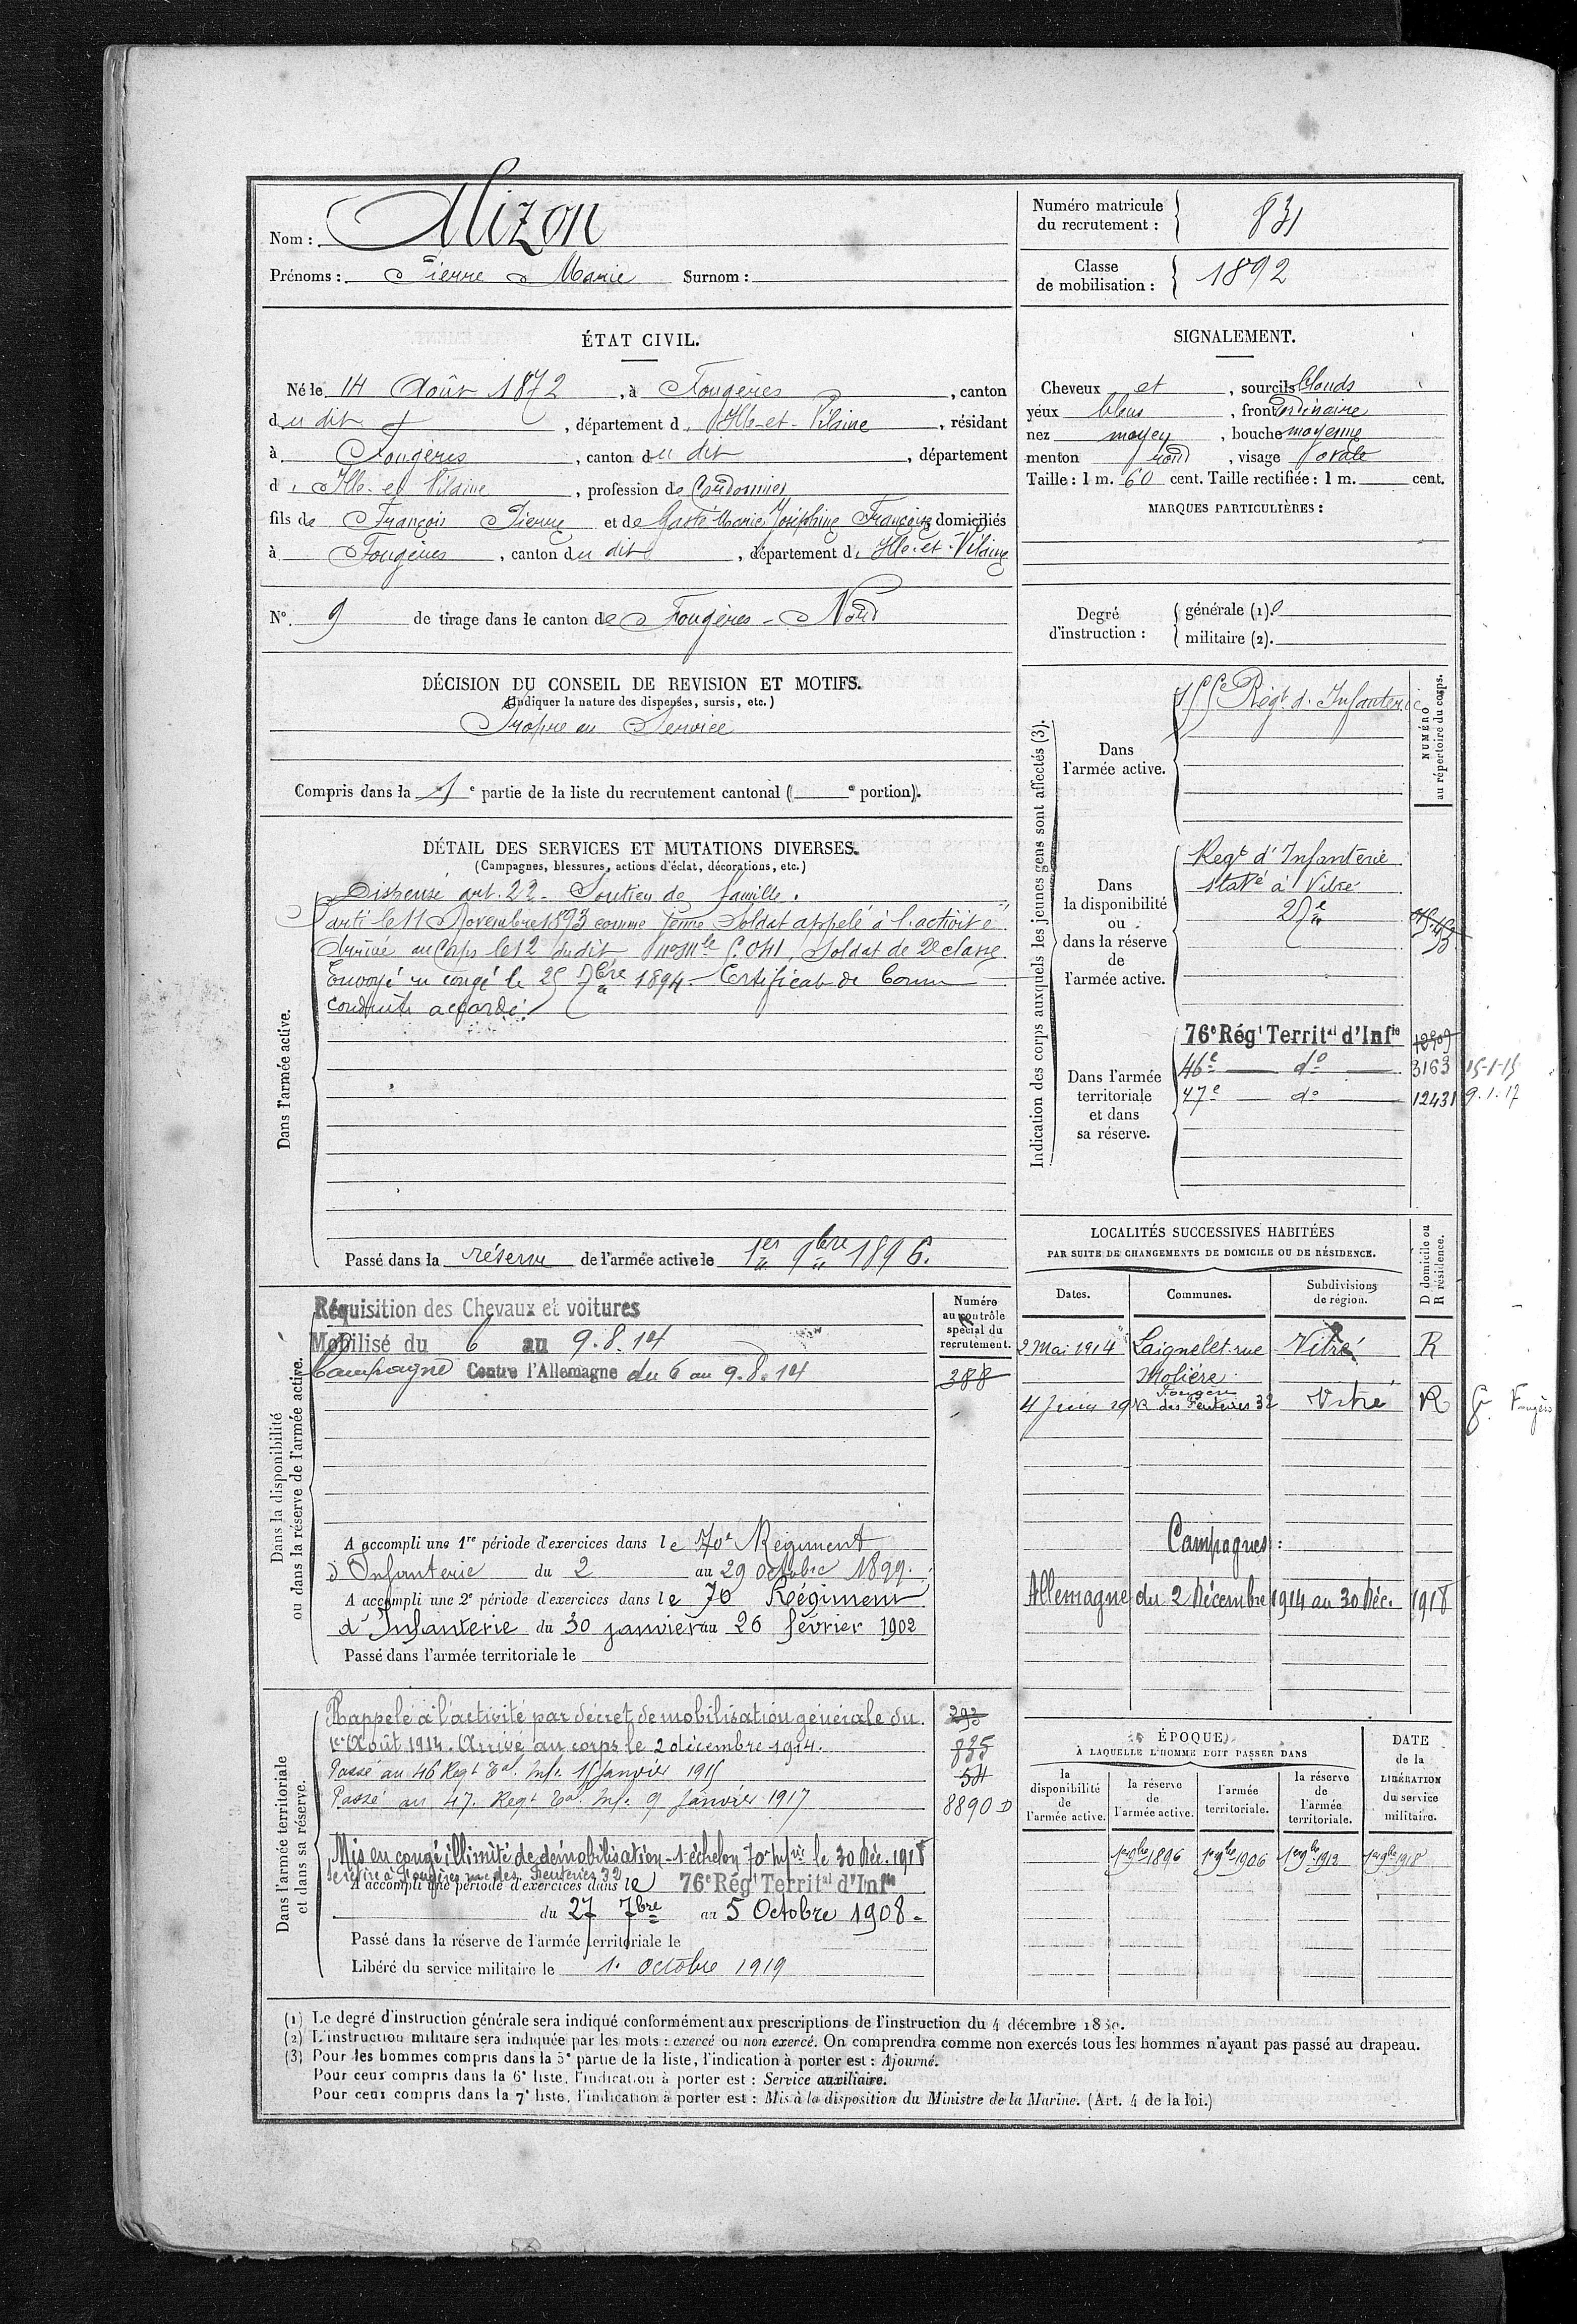 Nom : Mizon
Prénoms : Pierre Marie Surnom :
Numéro matricule du recrutement : 831
Classe de mobilisation : 1892
ÉTAT CIVIL.
Né le 14 Août 1872, à Fougères, canton
du dit, département d'Ille-et-Vilaine, résidant
à Fougères, canton du dit, département
d'Ille-et-Vilaine, profession de Cordonnier
fils de François Pierre et de Gasté Marie Joséphine Françoise domiciliés
à Fougères, canton du dit, département d'Ille-et-Vilaine
N° 9 de tirage dans le canton de Fougères-Nord
SIGNALEMENT.
Cheveux et, sourcils blonds
yeux bleus, front ordinaire
nez moyen, bouche moyenne
menton rond, visage ovale
Taille : 1 m. 60 cent. Taille rectifiée : 1 m. cent.
MARQUES PARTICULIÈRES :
Degré d'instruction : générale (1) 0
militaire (2).
DÉCISION DU CONSEIL DE REVISION ET MOTIFS.
(Indiquer la nature des dispenses, sursis, etc.)
Propre au Service
Compris dans la 1e partie de la liste du recrutement cantonal ( e portion).
DÉTAIL DES SERVICES ET MUTATIONS DIVERSES.
(Campagnes, blessures, actions d'éclat, décorations, etc.)
Dans l'armée active.
Dispensé art. 22. Soutien de famille.
Parti le 11 Novembre 1893 comme jeune Soldat appelé à l'activité
Arrivé au Corps le 12 dudit, Soldat de 2e classe
Envoyé en congé le 25 7bre 1894 - Certificat de bonne
conduite accordé.
Passé dans la réserve de l'armée active le 1er 9bre 1896.
Indication des corps auxquels les jeunes gens sont affectés (3).
NUMÉRO au répertoire du corps.
Dans l'armée active.
Régt d'Infanterie
Dans la disponibilité ou dans la réserve de l'armée active.
Regt d'Infanterie
staté à Vitré
Dans l'armée territoriale et dans sa réserve.
76e Régt Territal d'Infie
46e do 3163 15-1-15
47e do 12431 9.1.17
LOCALITÉS SUCCESSIVES HABITÉES
PAR SUITE DE CHANGEMENTS DE DOMICILE OU DE RÉSIDENCE.
Dates. Communes. Subdivisions de région. D domicile ou R résidence.
2 Mai 1914 Laignelet. rue Molière Vitré R
4 Juin 19 Fougères R. des Feuteries 32 Vitré R
Campagnes :
Allemagne du 2 Décembre 1914 au 30 Déc. 1918
Dans la disponibilité ou dans la réserve de l'armée active.
Numéro au contrôle spécial du recrutement.
Réquisition des Chevaux et voitures
Mobilisé du 6 au 9.8.14
Campagne Contre l'Allemagne du 6 au 9.8.14
388
A accompli une 1re période d'exercices dans le 70e Régiment
d'Infanterie du 2 au 29 octobre 1899.
A accompli une 2e période d'exercices dans le 70 Régiment
d'Infanterie du 30 janvier au 26 février 1902
Passé dans l'armée territoriale le
Dans l'armée territoriale et dans sa réserve.
Rappelé à l'activité par décret de mobilisation générale du
1er Août 1914. Arrivé au corps le 2 décembre 1914.
Passé au 46 Regt Tal. Inf. 15 Janvier 1915
Passé au 47. Regt Tal. Inf. 9 Janvier 1917
293
835
54
8890 D
Mis en congé illimité de démobilisation - 1 échelon 70e Infie le 30 Déc. 1918
se retire à Fougères rue des Feuteries 32
A accompli une période d'exercices dans le 76e Régt Territal d'Infie
du 27 7bre au 5 Octobre 1908
Passé dans la réserve de l'armée territoriale le
Libéré du service militaire le 1. Octobre 1919
ÉPOQUE
À LAQUELLE L'HOMME DOIT PASSER DANS
la disponibilité de l'armée active. la réserve de l'armée active. l'armée territoriale. la réserve de l'armée territoriale. DATE de la LIBÉRATION du service militaire.
1er 9bre 1896 1er 9bre 1906 1er 9bre 1912 1er 9bre 1918
(1) Le degré d'instruction générale sera indiqué conformément aux prescriptions de l'instruction du 4 décembre
(2) L'instruction militaire sera indiquée par les mots : exercé ou non exercé. On comprendra comme non exercés tous les hommes n'ayant pas passé au drapeau.
(3) Pour les hommes compris dans la 5e partie de la liste, l'indication à porter est : Ajourné.
Pour ceux compris dans la 6e liste, l'indication à porter est : Service auxiliaire.
Pour ceux compris dans la 7e liste, l'indication à porter est : Mis à la disposition du Ministre de la Marine. (Art. 4 de la loi.)